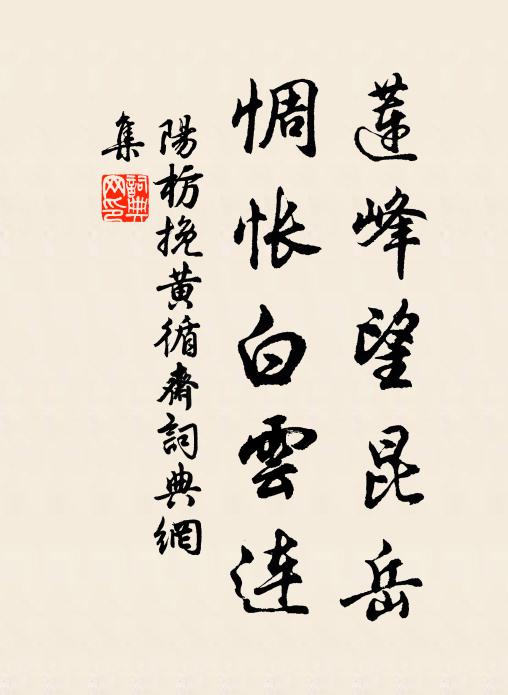 蓮峰望昆岳
惆怅白雲連
陽枋挽黄循齋詞典網
集
詞典
網印